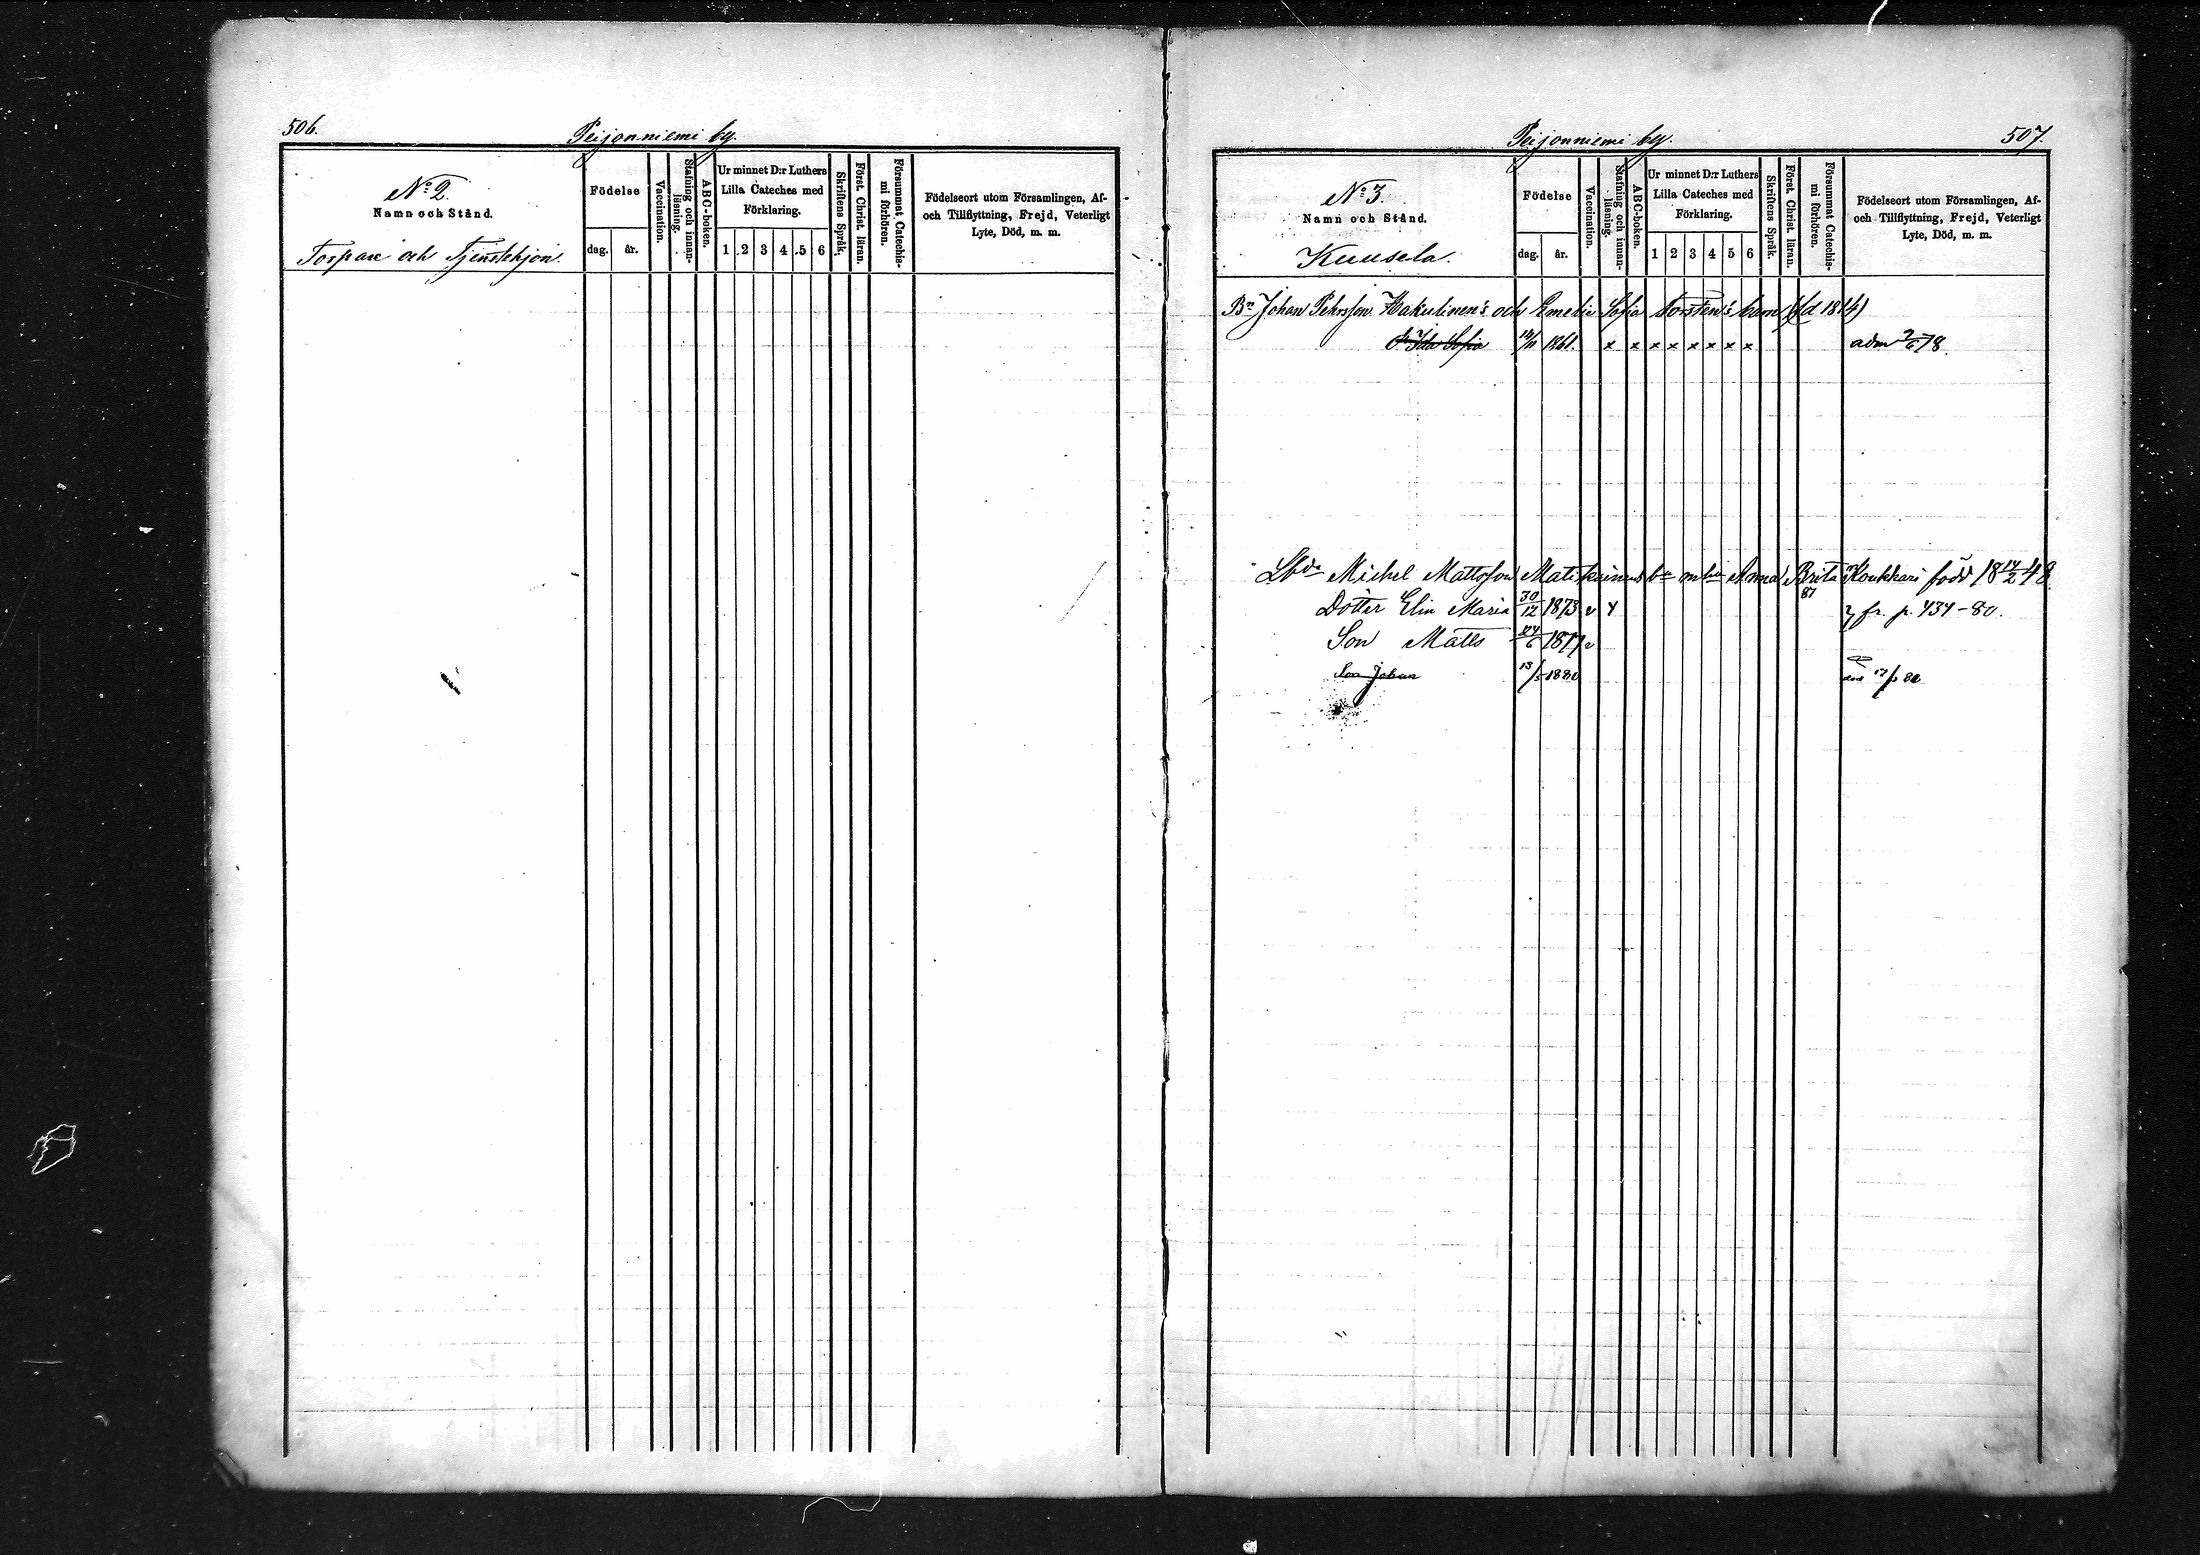 506.
Peijonniemi by.
No 2.
Namn och Stånd.
Torpare och Tjenstehjon.
Födelse
dag. år.
Vaccination.
Stafning och innan-läsning.
ABC-boken.
Ur minnet D:r Luthers
Lilla Cateches med
Förklaring.
1 2 3 4 5 6
Skriftens Språk.
Först. Christ. läran.
Försummat Catechis-
mi förhören.
Födelseort utom Församlingen, Af-
och Tillflyttning, Frejd, Veterligt
Lyte, Död, m. m.
Peijonniemi by.
507.
No 3.
Namn och Stånd.
Kuusela.
Födelse
dag. år.
Vaccination.
Stafning och innan-läsning.
ABC-boken.
Ur minnet D:r Luthers
Lilla Cateches med
Förklaring.
1 2 3 4 5 6
Skriftens Språk.
Först. Christ. läran.
Försummat Catechis-
mi förhören.
Födelseort utom Församlingen, Af-
och Tillflyttning, Frejd, Veterligt
Lyte, Död, m. m.
Bn Johan Pehrsson Hakulinen's och Emelia Sofia Torstén's barn (fd 1814)
Ida Sofia 1861. x x x x x x x x adm 78.
Michel Mattsson Matikainens Anna Brita Koukkari född 18 14/2 48
87
Dotter Elin Maria 30/12 1873 v fr. p. 434-80.
Son Matts 1877 v
Son Johan 13/5 1880 80